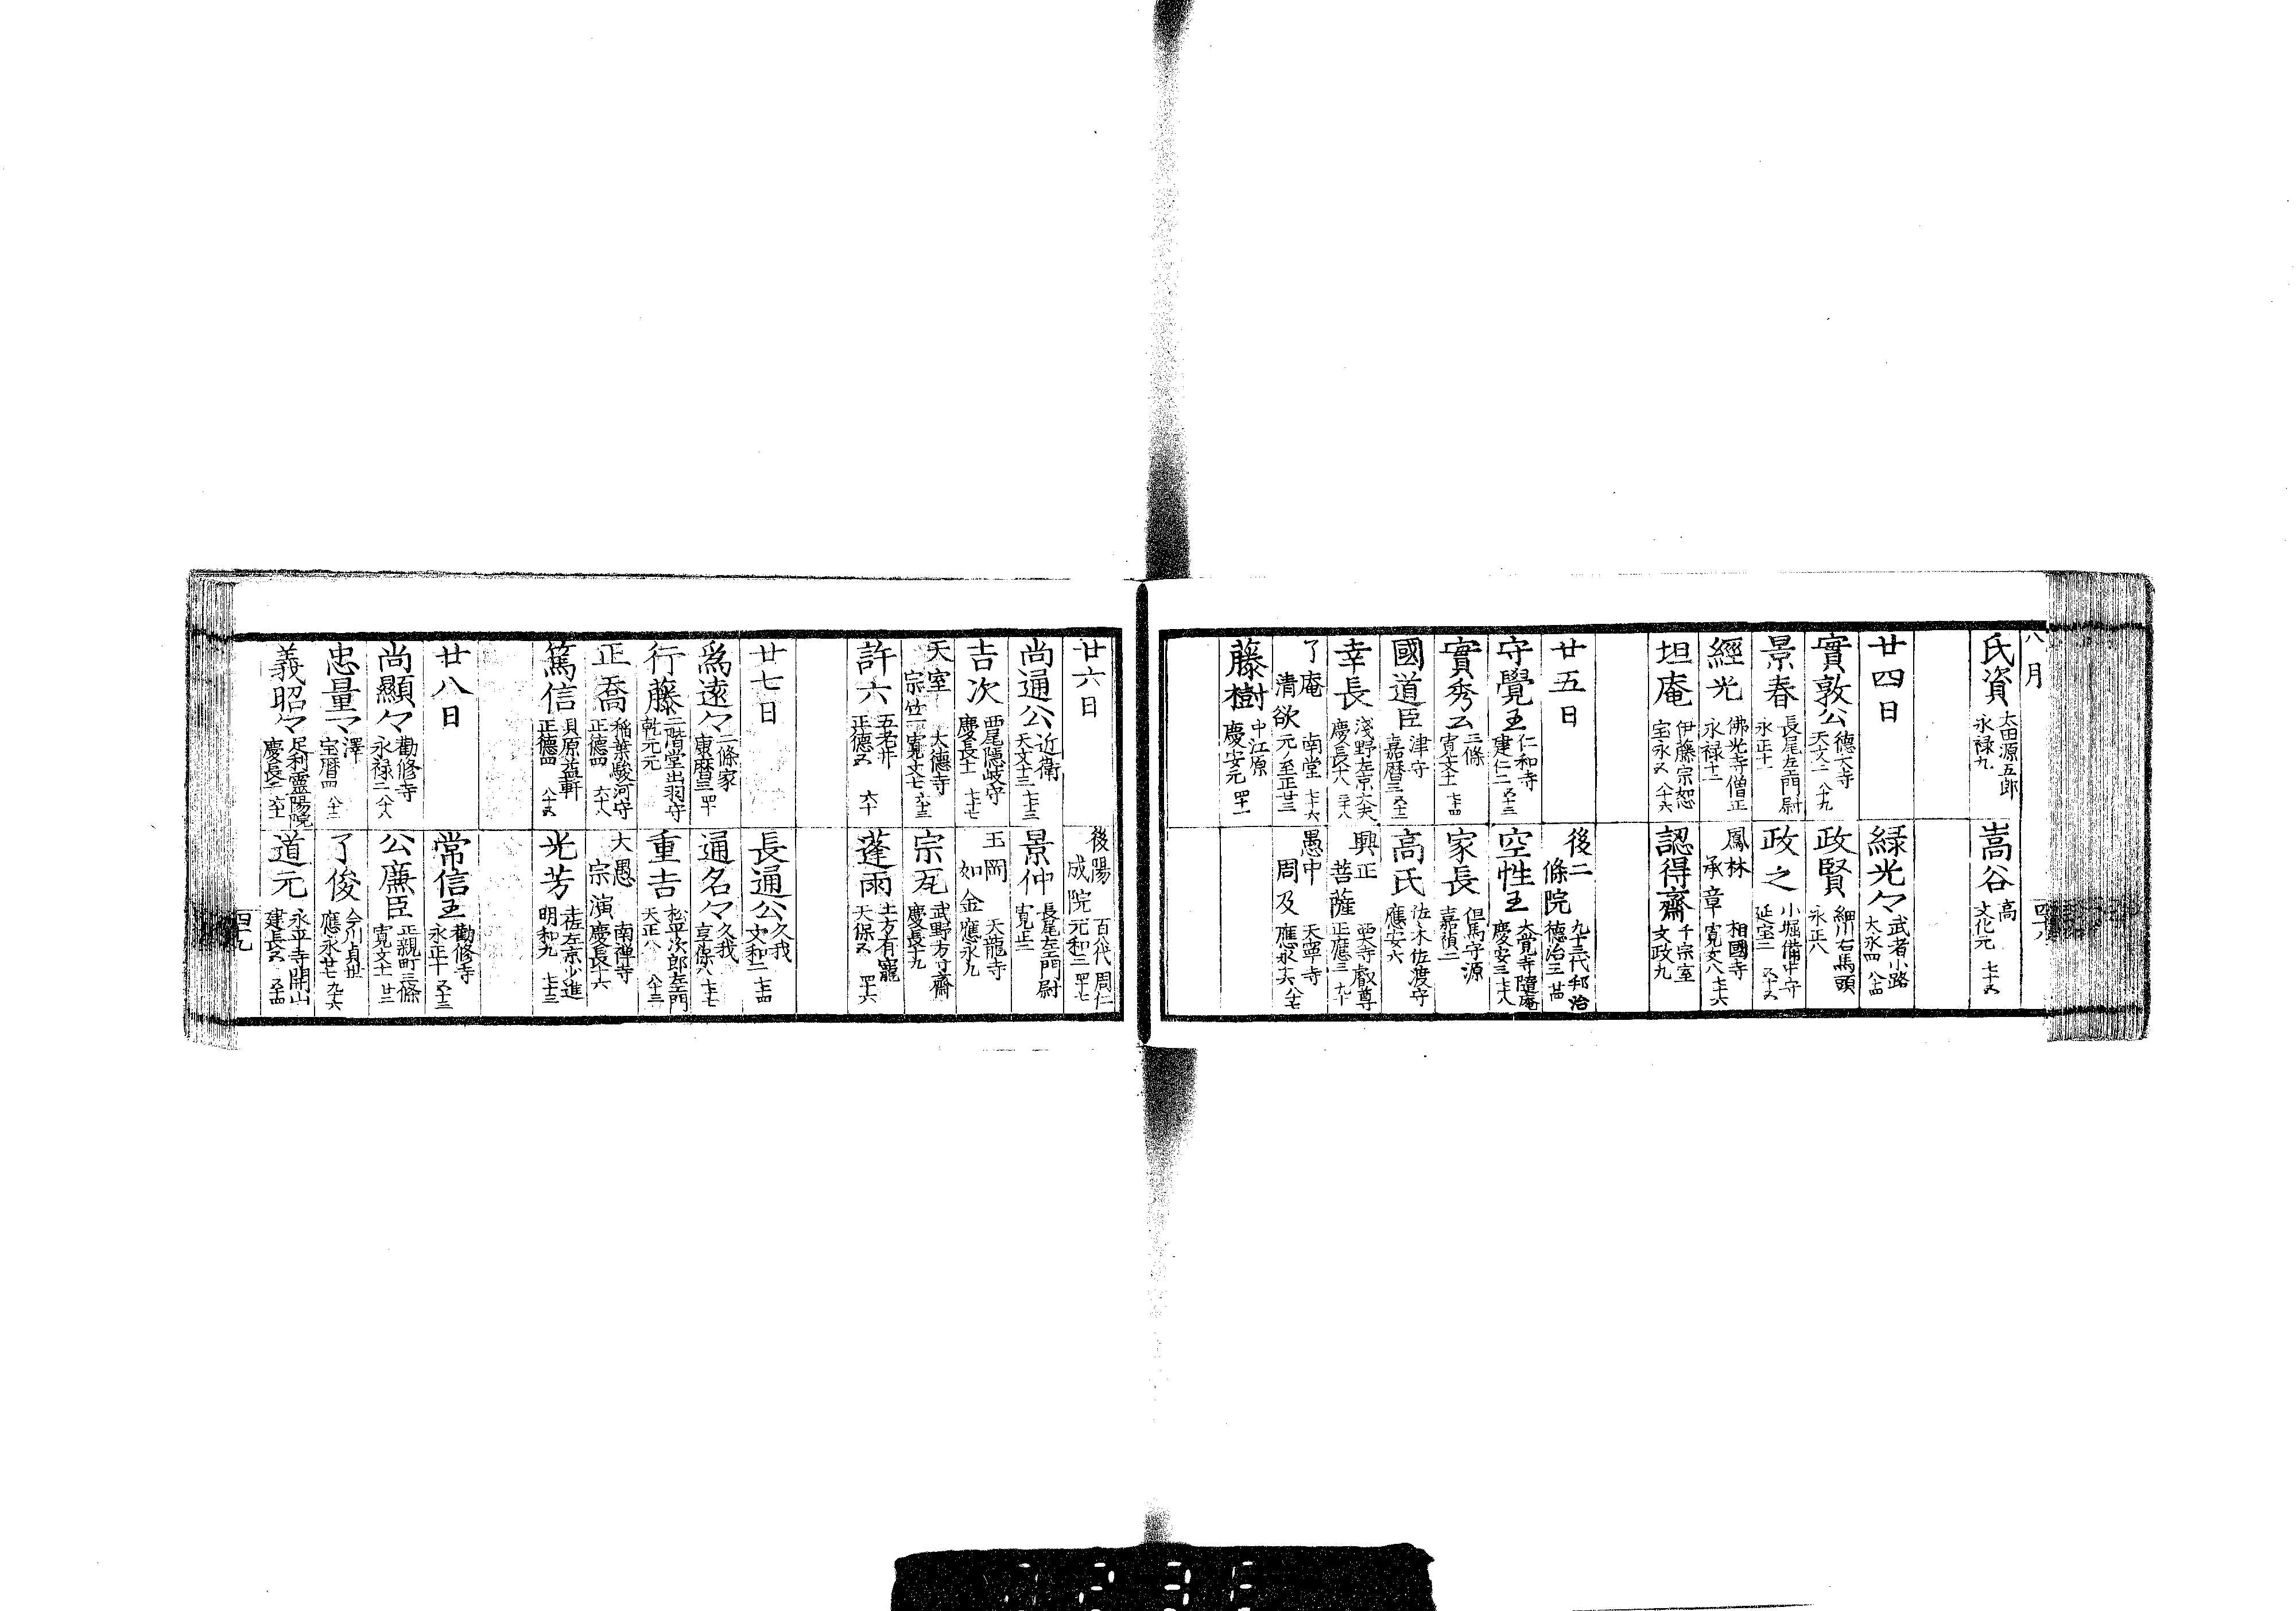 八月
氏資 太田源五郎 永禄九
嵩谷 高 文化元 七十五
廿四日
緑光々 武者小路 大永四 八十四
實敦公 德大寺 天文二 八十九
政賢 細川右馬頭 永正八
景春 長尾左衛門尉 永正十一
政之 小堀備中守 延宝二 五十五
經光 佛光寺僧正 永禄十二
鳳林承章 相國寺 寛文八 七十六
坦庵 伊藤宗恕 宝永五 八十六
認得齋 千宗室 文政九
廿五日
後二條院 九十三代邦治 德治三 廿四
守覺王 仁和寺 建仁二 五十三
空性王 大覺寺隨庵 慶安三 七十八
實秀公 三條 寛文十一 七十四
家長 但馬守源 嘉禎二
國道臣 津守 嘉曆三 五十二
高氏 佐々木佐渡守 應安六
幸長 淺野左京大夫 慶長十八 三十八
興正菩薩 西大寺叡尊 正應三 九十
了庵清欲 南堂 元ノ至正廿三 七十六
愚中周及 天寧寺 應永十六 八十七
藤樹 中江原 慶安元 四十一
廿六日
後陽成院 百八代周仁 元和三 四十七
尚通公 近衛 天文十三 七十三
景仲 長尾左衛門尉 寛正三
吉次 西尾隠岐守 慶長十一 七十七
玉岡如金 天龍寺 應永九
天室宗竺 大德寺 寛文七 六十三
宗瓦 武野方寸齋 慶長十九
許六 五老井 正德五 六十
蓬雨 土方有寵 天保五 四十六
廿七日
長通公 久我 文和二 七十四
爲遠々 二條家 康曆三 四十
通名々 久我 享保八 七十七
行藤 二階堂出羽守 乾元元
重吉 松平次郎左衛門 天正八 八十三
正喬 稲葉駿河守 正德四 六十八
大愚宗演 南禅寺 慶長十六
篤信 貝原益軒 正德四 八十五
光芳 土佐左京少進 明和九 七十三
廿八日
常信王 勸修寺 永正十 五十三
尚顯々 勸修寺 永禄二 八十八
公廉臣 正親町三條 寛文十一 廿三
忠量々 澤 宝暦四 八十二
了俊 今川貞世 應永廿七 九十六
義昭々 足利靈陽院 慶長二 六十一
道元 永平寺開山 建長五 五十四
四十九